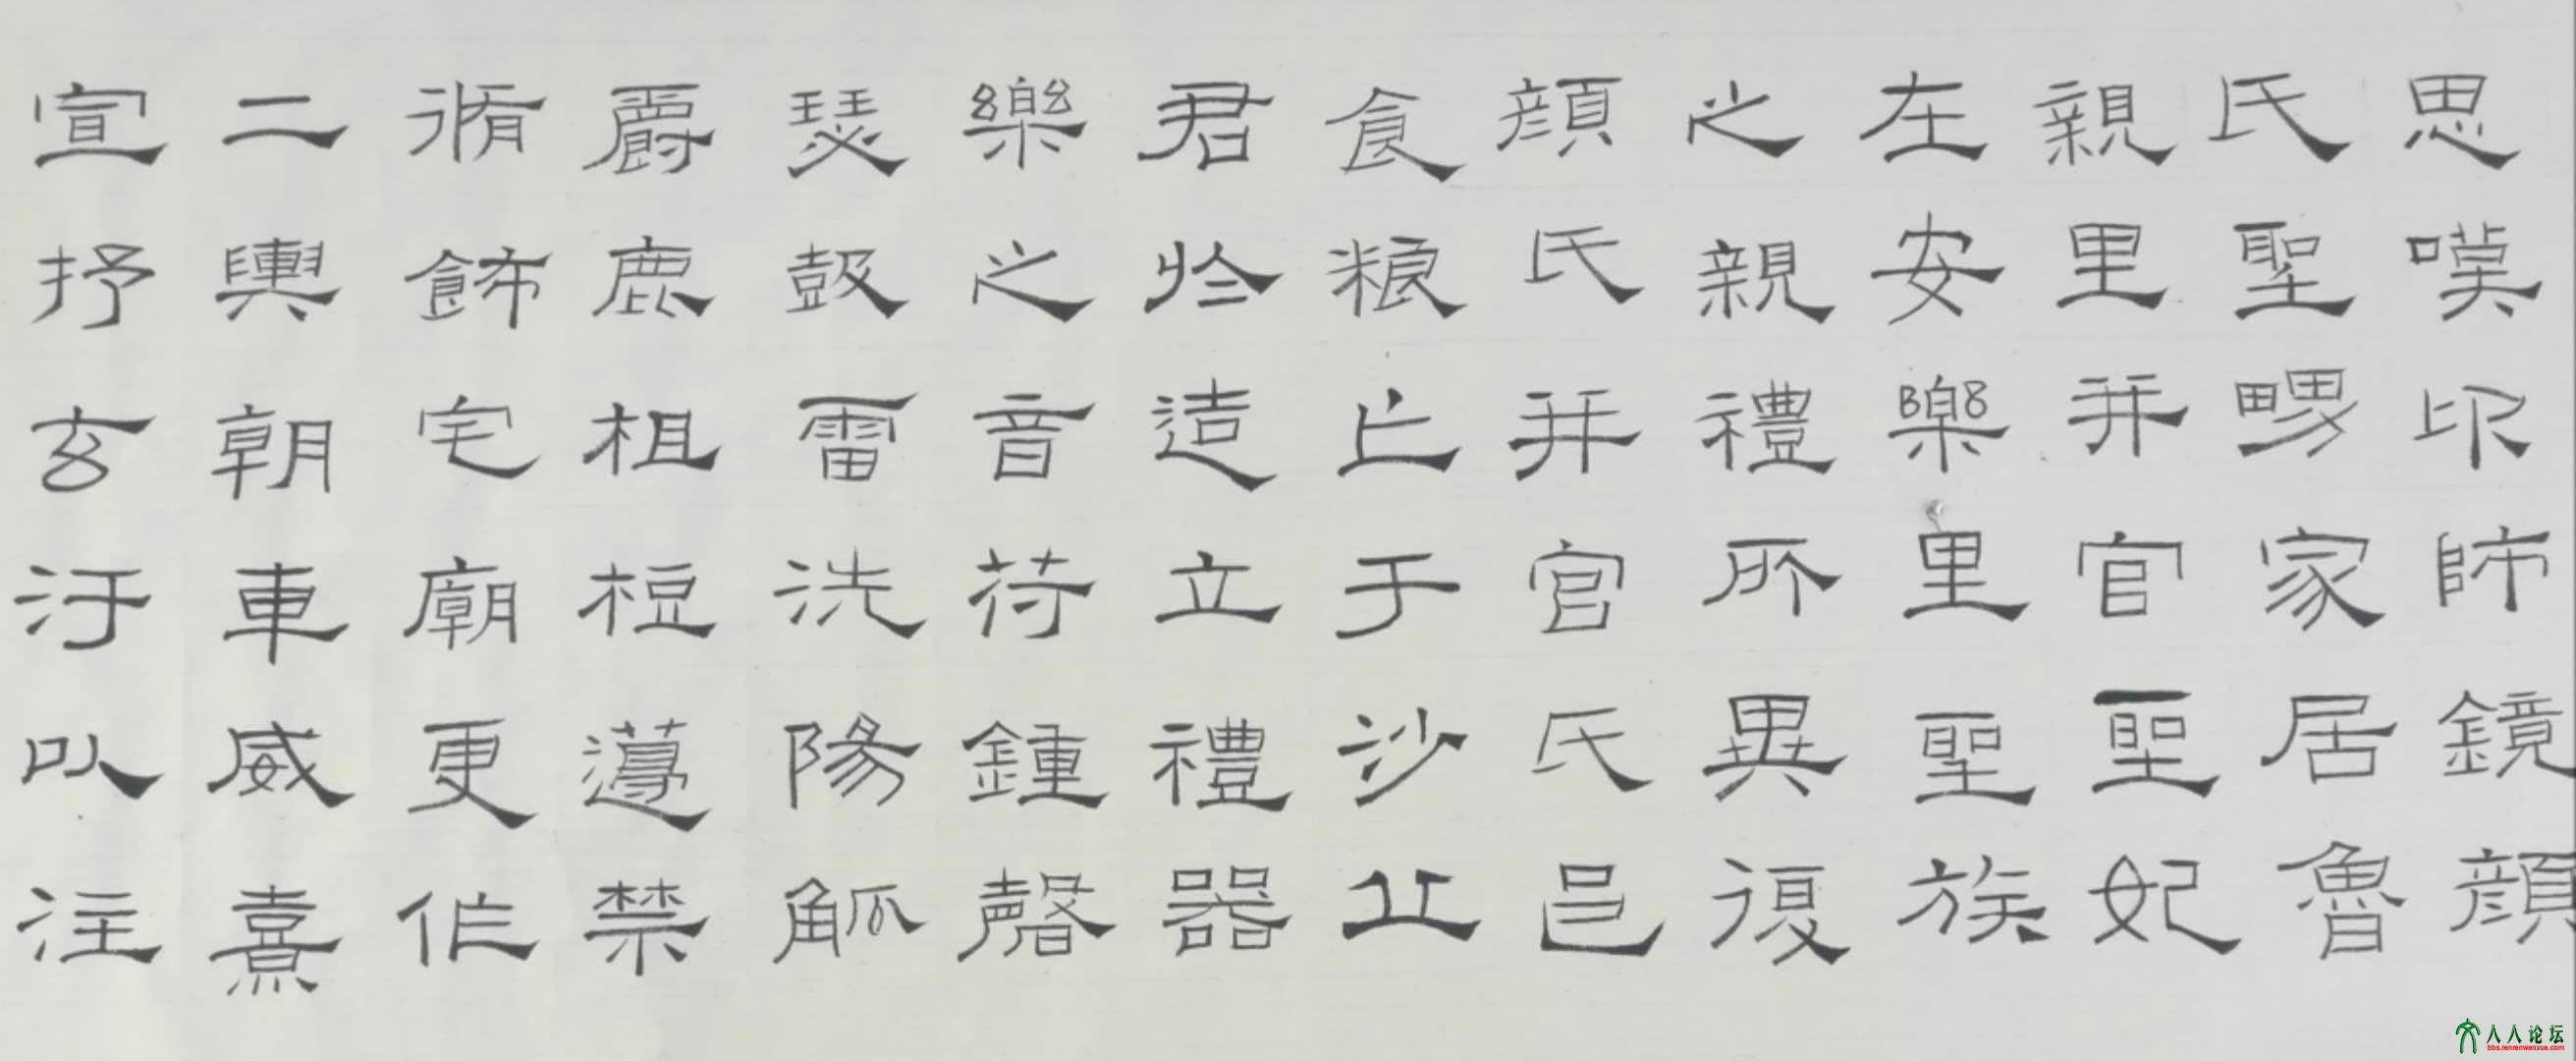 思嘆卬師鏡顏
氏聖舅家居魯
親里并官聖妃
在安樂里聖族
之親禮所異復
顏氏并官氏邑
食糧亡于沙丘
君於造立禮器
樂之音苻鍾磬
瑟鼓雷洗陽觚
爵鹿柤梪籩禁
脩飾宅廟更作
二輿朝車威熹
宣抒玄汙以注
人人论坛
bbs.renrenwenxue.com